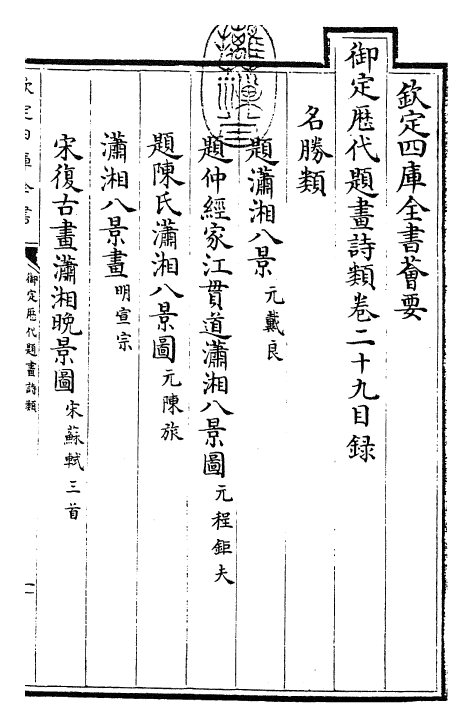 欽定四庫全書薈要
御定歷代題畫詩類卷二十九目録
名勝類
題瀟湘八景 元戴良
題仲經家江貫道瀟湘八景圖 元程鉅夫
題陳氏瀟湘八景圖 元陳旅
瀟湘八景畫 明宣宗
宋復古畫瀟湘晚景圖 宋蘇軾 三首
欽定四庫全書
御定歷代題畫詩類